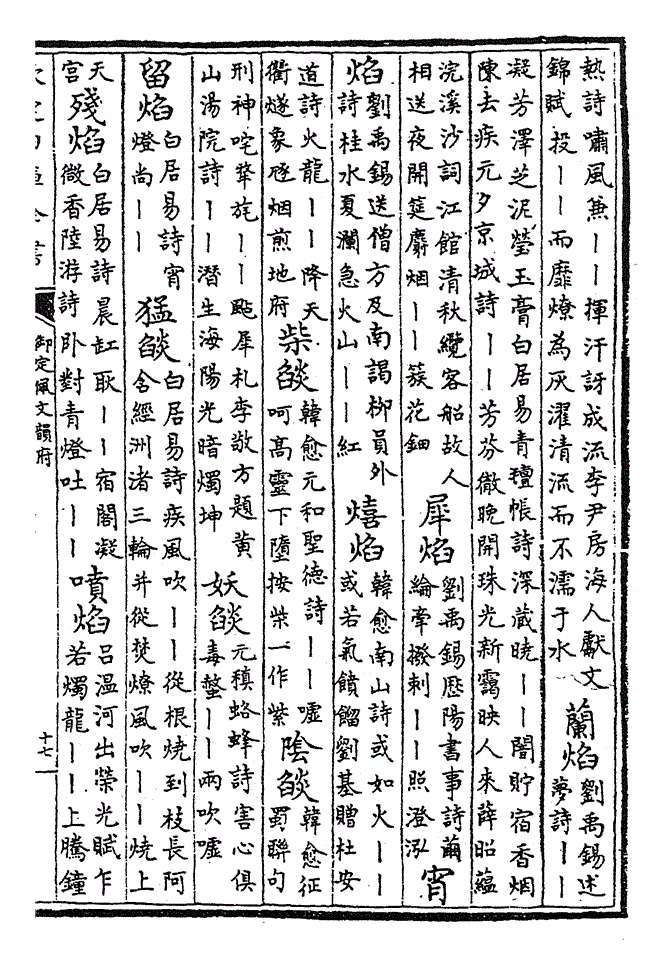 熱詩嘯風兼丨丨揮汗訝成流李尹房海人獻文
錦賦投丨丨而靡燎為灰濯清流而不濡于水
蘭焰
劉禹錫述
夢詩丨丨
凝芳澤芝泥瑩玉膏白居易青氊帳詩深藏曉丨丨闇貯宿香烟
陳去疾元夕京城詩丨丨芳芬徹曉開珠光新靄映人來薛昭蘊
浣溪沙詞江館清秋纜客船故人
相送夜開筵麝烟丨丨簇花鈿
犀焰
劉禹錫歷陽書事詩繭
綸牽撥刺丨丨照澄泓
宵
焰
劉禹錫送僧方及南謁柳員外
詩桂水夏瀾急火山丨丨紅
熺焰
韓愈南山詩或如火丨丨
或若氣饙餾劉基贈杜安
道詩火龍丨丨降天
衢燧象駆烟煎地府
柴燄
韓愈元和聖德詩丨丨噓
呵高靈下墮按柴一作紫
陰燄
韓愈征
蜀聯句
刑神咤犛旄丨丨颭犀札李敬方題黄
山湯院詩丨丨潛生海陽光暗燭坤
妖燄
元稹蛒蜂詩害心俱
毒螫丨丨兩吹噓
留焰
白居易詩宵
燈尚丨丨
猛燄
白居易詩疾風吹丨丨從根燒到枝長阿
含經洲渚三輪并從焚燎風吹丨丨燒上
天
宫
殘焰
白居易詩晨缸耿丨丨宿閣凝
微香陸游詩卧對青燈吐丨丨
噴焰
吕温河出榮光賦乍
若燭龍丨丨上騰鐘
御定佩文韻府
十七